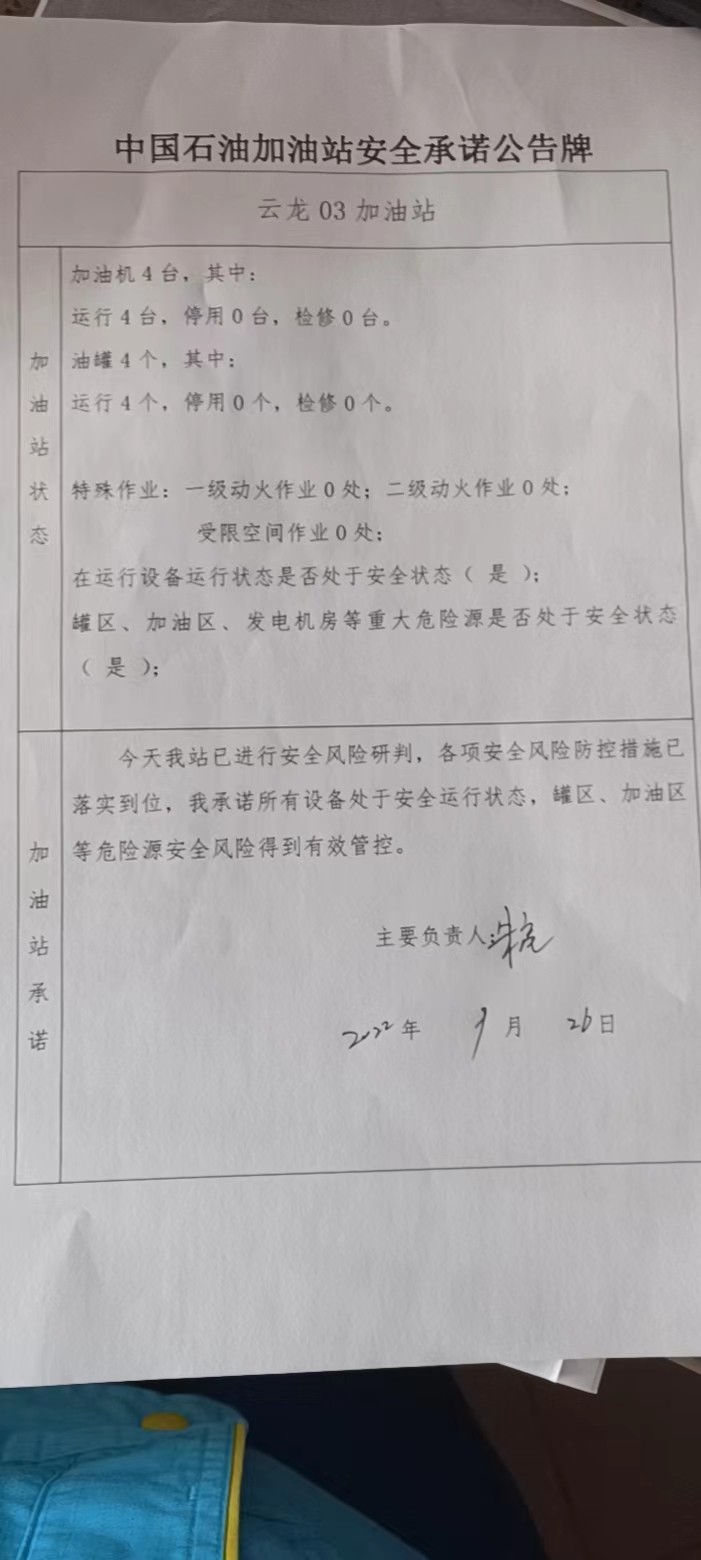 中国石油加油站安全承诺公告牌
云龙 03 加油站
加油站状态
加油机 4 台，其中：
运行 4 台，停用 0 台，检修 0 台。
油罐 4 个，其中：
运行 4 个，停用 0 个，检修 0 个。
特殊作业：一级动火作业 0 处；二级动火作业 0 处；
受限空间作业 0 处；
在运行设备运行状态是否处于安全状态（ 是 ）；
罐区、加油区、发电机房等重大危险源是否处于安全状态
（ 是 ）；
加油站承诺
今天我站已进行安全风险研判，各项安全风险防控措施已
落实到位，我承诺所有设备处于安全运行状态，罐区、加油区
等危险源安全风险得到有效管控。
主要负责人
2022 年 9 月 26 日